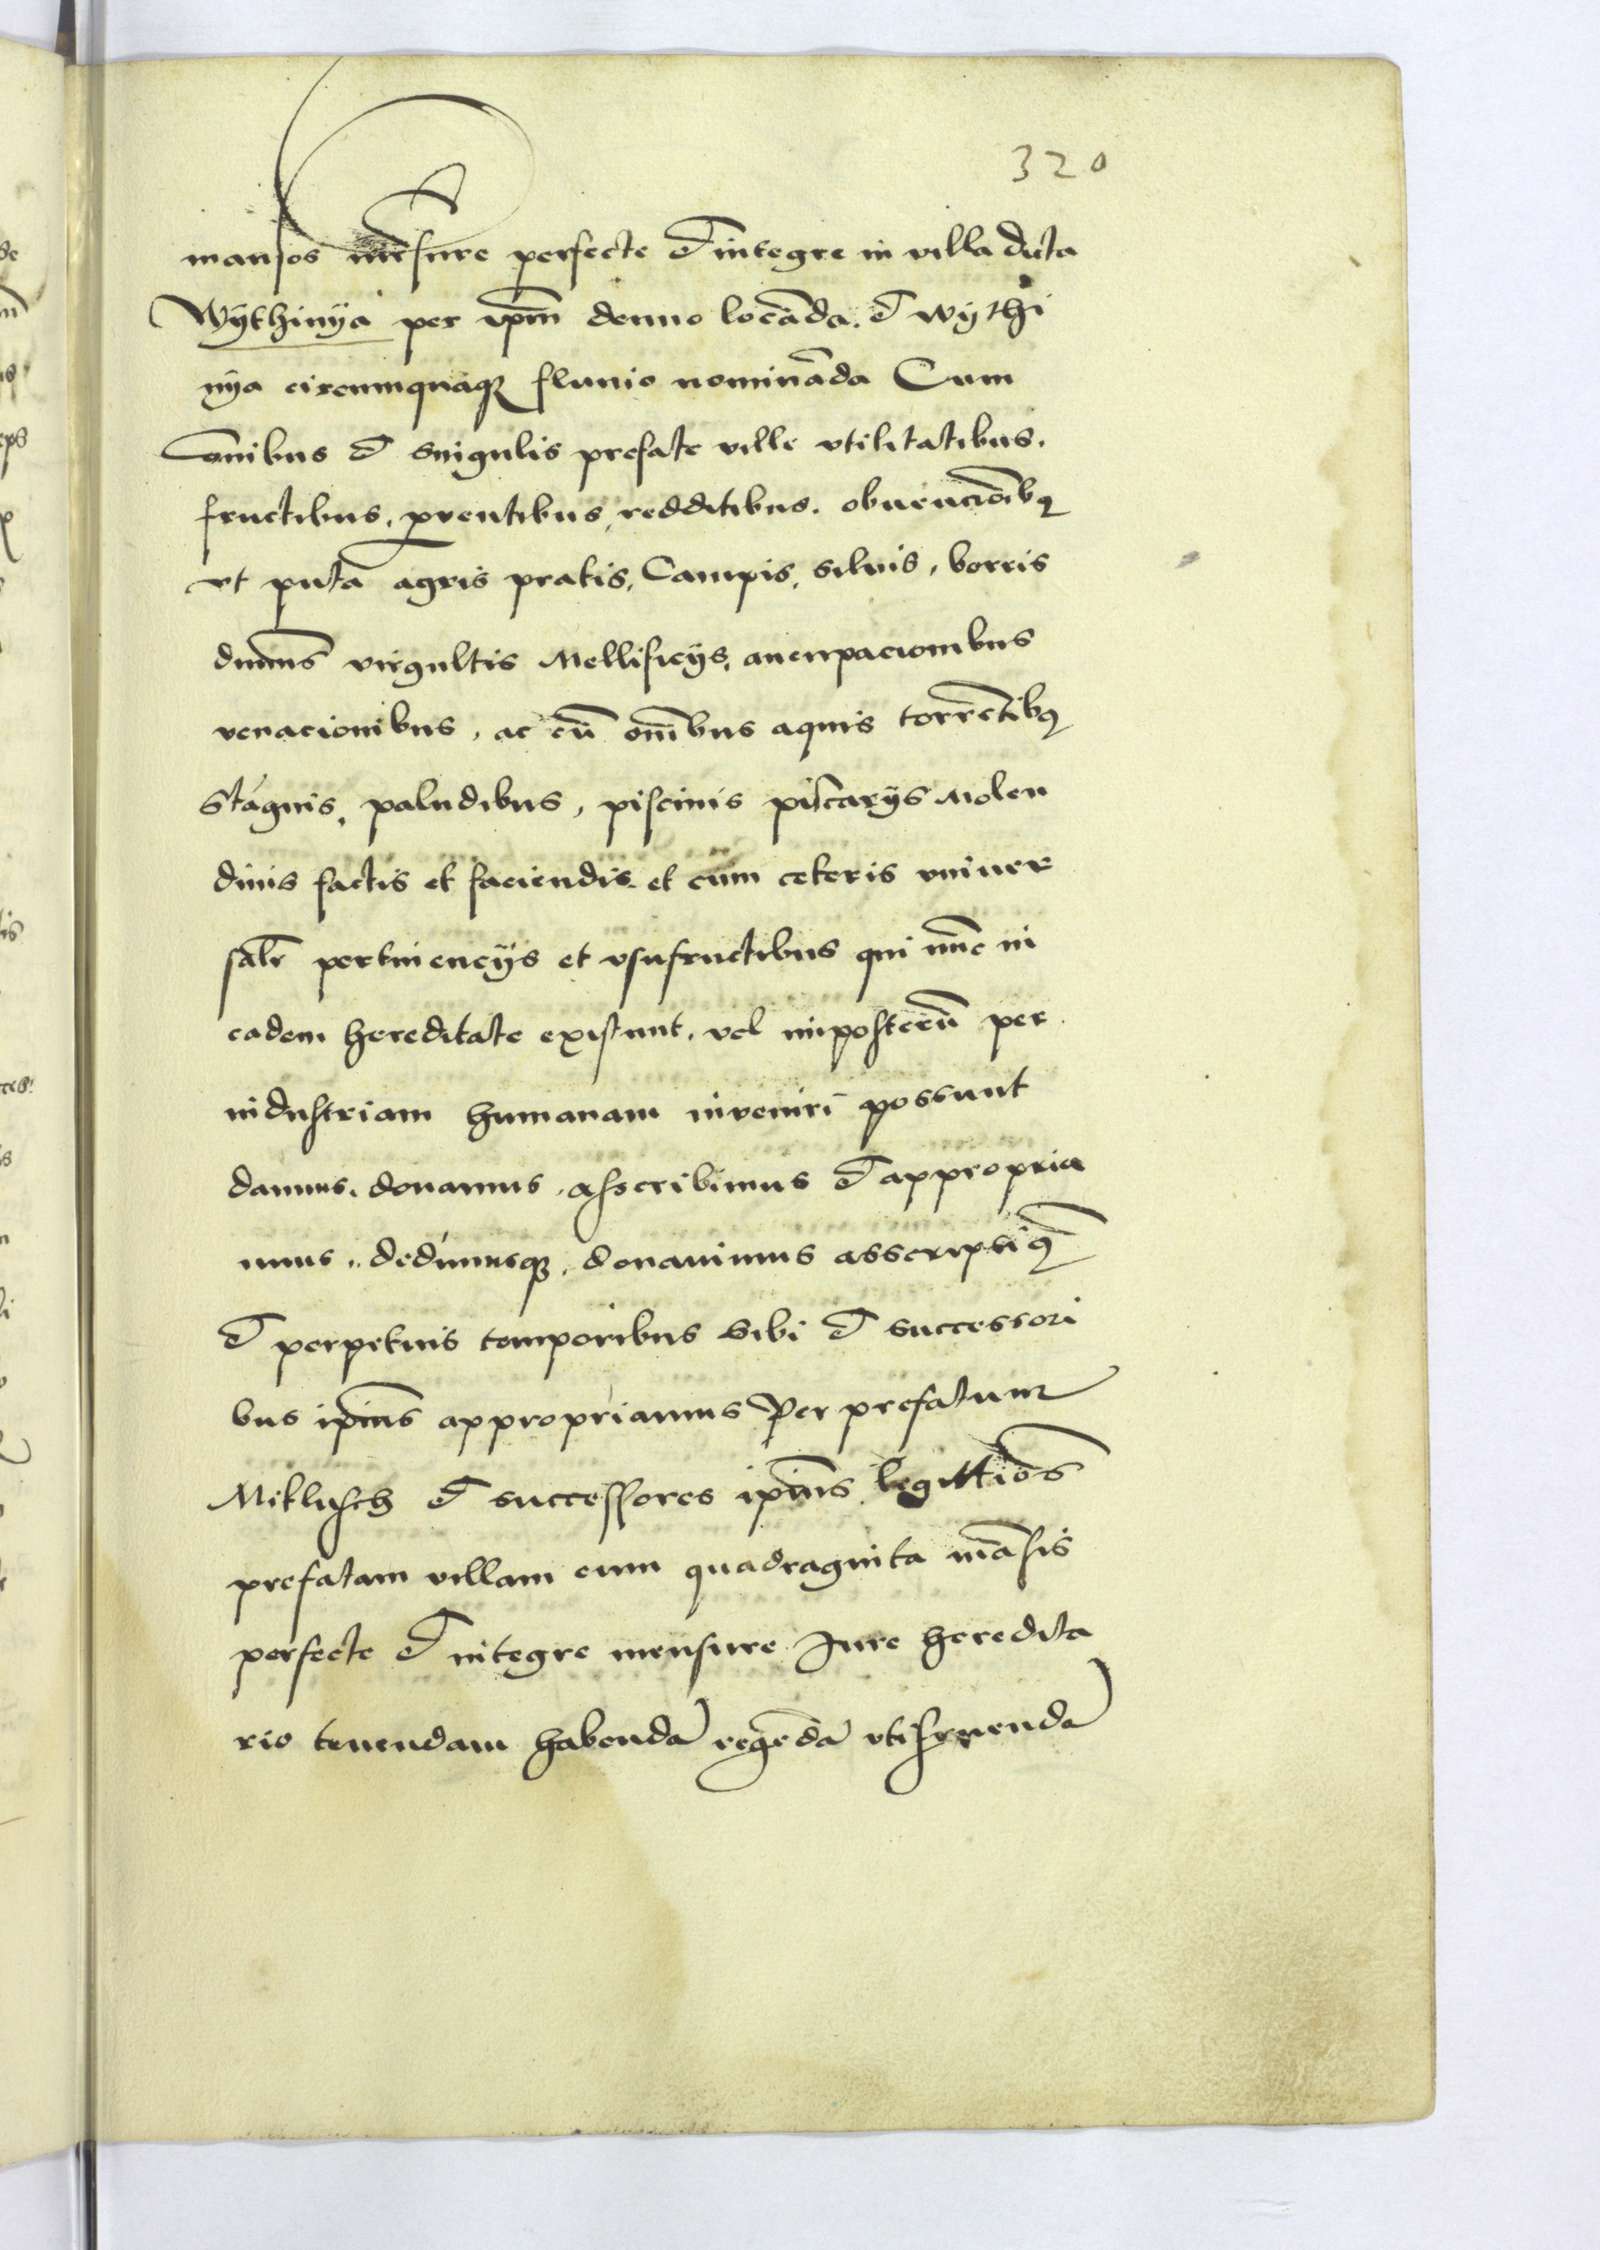 320
mansos mēsure perfecte et integre in villa dicta
Wÿthinÿa per ip̄m denuo locāda. et wÿthi
nÿa circumquaqꝫ fluuio nomināda Cum
om̄ibus et singulis prefate ville vtilitatibus.
fructibus, ꝓuentibus, redditibus. obuencōnibꝰ
vt puta agris pratis, Campis, siluis, borris
dumis virgultis Mellificÿs, aucupacionibus
venacionibus, ac cū om̄ibus aquis torrētibꝰ
stagnis, paludibus, piscinis piscarÿs Molen
dinis factis et faciendis et cum ceteris vniuer
salr̄ pertinencÿs et vsufructibus qui nūc in
eadem hereditate existunt. vel imposterū per
industriam humanam inveniri possunt
damus. donamus. asscribimus et appropria
mus. dedimusqꝫ. donauimus asscripsiꝰ
et perpetuis temporibus sibi et successori
bus ip̄ius appropriamus Per prefatum
Miklusch et successores ip̄ius legittīos
prefatam villam cum quadraginta māsis
perfecte et integre mensure Jure heredita
rio tenendam habendā regēdā vtifruendā